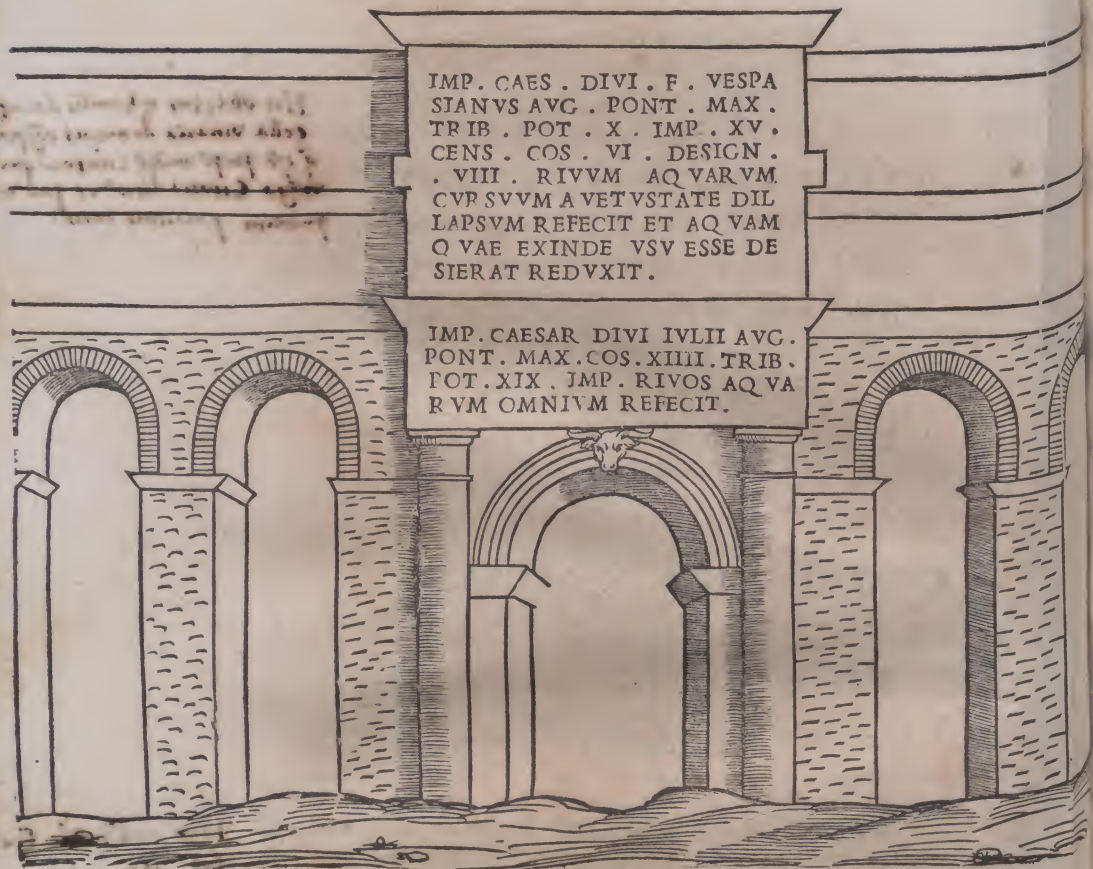 IMP. CAES . DIVI . F . VESPA
SIANVS AVG . PONT . MAX .
TRIB . POT . X . IMP . XV .
CENS . COS . VI . DESIGN .
. VIII . RIVVM AQVARVM
CVRSVVM A VETVSTATE DIL
LAPSVM REFECIT ET AQVAM
QVAE EXINDE VSV ESSE DE
SIERAT REDVXIT .
IMP. CAESAR DIVI IVLII AVG.
PONT. MAX. COS. XIIII. TRIB.
POT. XIX. IMP. RIVOS AQVA
RVM OMNIVM REFECIT.